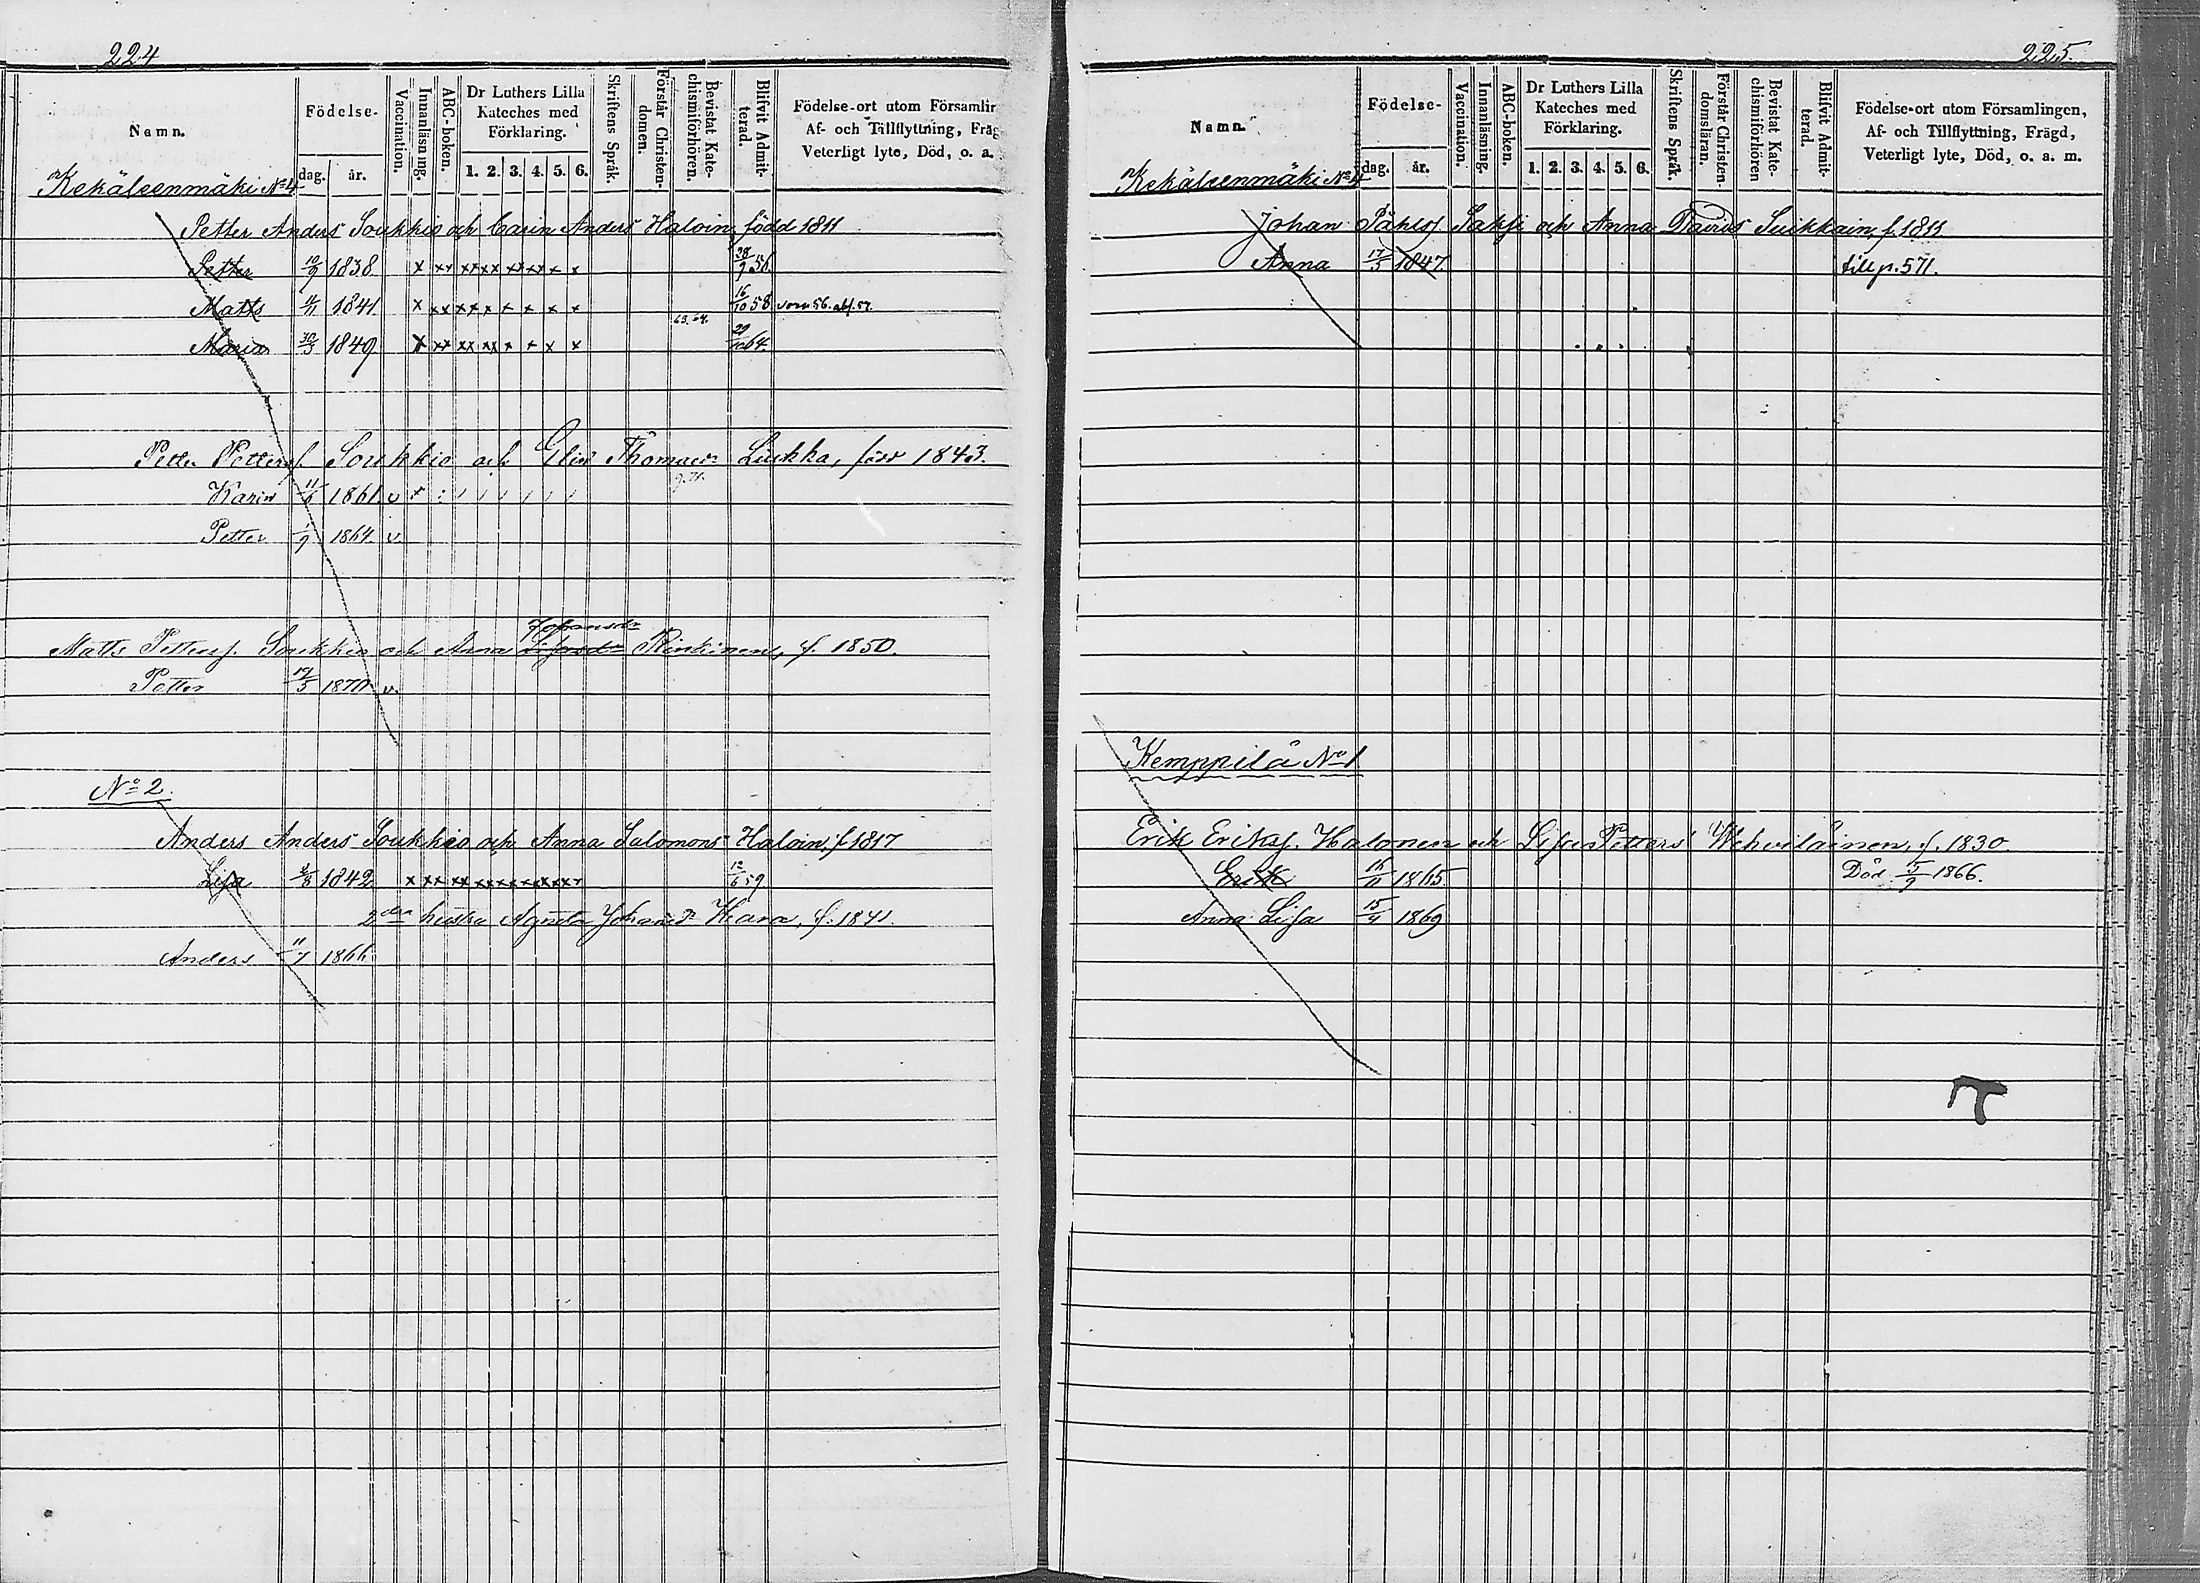 224
Namn.
Födelse-
dag. år.
Vaccination.
Innanläsning.
ABC-boken.
Dr Luthers Lilla Kateches med Förklaring.
1. 2. 3. 4. 5. 6.
Skriftens Språk.
Förstår Christendomen.
Bevistat Katechismiförhören.
Blifvit Admitterad.
Födelse-ort utom Församlin
Af- och Tillflyttning, Fräg
Veterligt lyte, Död, o. a.
Kekäleenmäki No 4
Petter Anders Soukkio och Carin Anders Haloin, född 1811
Petter 10/9 1838. x xx xx xx xx x x 28/9 56.
Matts 4/11 1841 x xx xx x x x x x 16/10 58
Maria 30/3 1849 x xx xx xx x x x x 63. 64. 29/10 64.
Petter Petterss. Soukkio och Elin Thomasdr Luukka, född 1843.
Karin 11/6 1861. v x
Petter 1/9 1864. v.
Johansdr
Matts Petterss. Soukkio och Anna Rinkinen, f. 1850.
Petter 12/3 1870. v.
No 2.
Anders Anders Soukkio och Anna Salomons Haloin, f 1817
Lisa 1842 x xx xx xx xx xx xx 12/6 59
2dra hustru Agneta Johansdr f. 1841.
Anders 11/7 1866.
225.
Namn.
Födelse-
dag. år.
Vaccination.
Innanläsning.
ABC-boken.
Dr Luthers Lilla Kateches med Förklaring.
1. 2. 3. 4. 5. 6.
Skriftens Språk.
Förstår Christendomsläran.
Bevistat Katechismiförhören
Blifvit Admitterad.
Födelse-ort utom Församlingen,
Af- och Tillflyttning, Frägd,
Veterligt lyte, Död, o. a. m.
Kekäleenmäki No 4
Johan Påhls Saksi och Anna Davids Suikkain, f. 1811
Anna 17/5 1847. till p. 571.
Kemppilä No 1
Erik Erikss. Halonen och Lisa Petters Wehviläinen, f. 1830.
Erik 16/11 1865. Död 5/9 1866.
Anna Lisa 15/4 1869